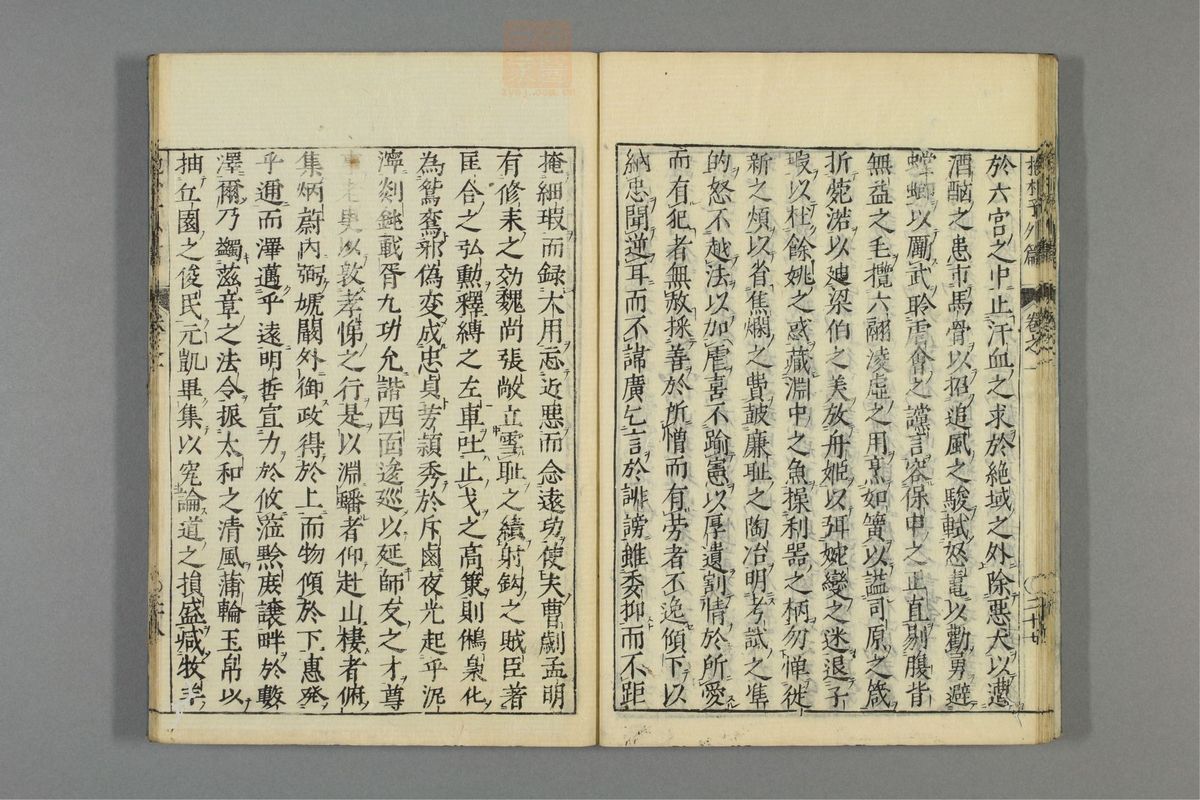 抱朴子外篇 卷之一
於六宮之中止汗血之求於絶域之外除惡犬以遭
酒酤之患市馬骨以招追風之駿軾怒鼃以勸勇避
螳螂以勵武聆虐會之讜言容保申之正直剔腹背
無益之毛攬六翮淩虛之用烹如簧以謐司原之箴
折菀渃以迪梁伯之美放丹姬以弭婉孌之迷退子
瑕以杜餘姚之惑藏淵中之魚操利器之柄勿憚徙
新之煩以省焦爛之費鼓廉耻之陶冶明考試之準
的怒不越法以加虐喜不踰憲以厚遺割情於所愛
而有犯者無赦採善於所憎而有芳者不逸傾下以
納忠聞逆耳而不諱廣乞言於誹謗雖委抑而不距
掩細瑕而録大用忘近惡而念遠功使夫曹劌孟明
有修來之効魏尚張敞立雪耻之績射鈎之賊臣著
匡合之弘勲釋縛之左車吐止戈之高策則鴟梟化
為鴛鸞邪偽變成忠貞芳頴秀於斥鹵夜光起乎泥
濘剡鋭載胥九功允諧西面逡巡以延師友之才尊
事老叟以敦孝悌之行是以淵蟠者仰赴山棲者俯
集炳蔚内弼虓闞外御政得於上而物傾於下惠發
乎邇而澤邁乎遠明哲宣力於攸蒞黔庶讓畔於藪
澤爾乃蠲滋章之法令振太和之清風蒲輪玉帛以
抽丘園之俊民元凱畢集以究論道之損盛臧牧羊